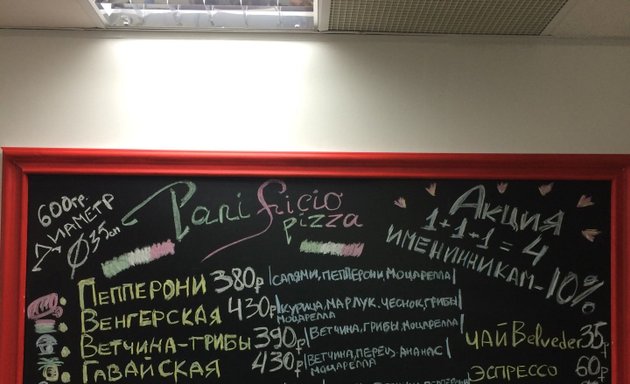 600гр.
ДИАМЕТР
Ø 35см
Panificio
pizza
Акция
1+1+1=4
ИМЕНИННИКАМ-10%
ПЕППЕРОНИ 380р |САЛЯМИ, ПЕППЕРОНИ, МОЦАРЕЛЛА|
ВЕНГЕРСКАЯ 430р |КУРИЦА, МАР.ЛУК, ЧЕСНОК, ГРИБЫ
МОЦАРЕЛЛА
ВЕТЧИНА-ГРИБЫ 390р |ВЕТЧИНА, ГРИБЫ, МОЦАРЕЛЛА|
ГАВАЙСКАЯ 430р |ВЕТЧИНА, ПЕРЕЦ, АНАНАС
МОЦАРЕЛЛА|
ЧАЙ Belveder 35р
ЭСПРЕССО 60р